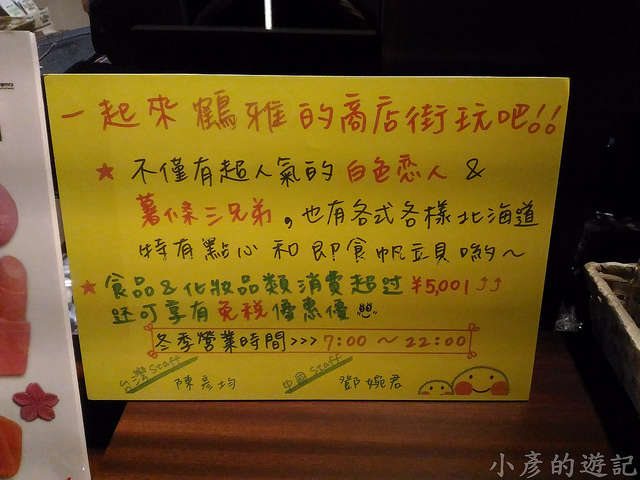 一起來鶴雅的商店街玩吧!!
★ 不僅有超人氣的 白色恋人 &
薯條三兄弟。也有各式各樣北海道
特有點心和即食帆立貝喲～
★ 食品&化妝品類消費超过 ¥5,001↑↑
还可享有免税優惠優
冬季營業時間>>> 7:00 ～ 22:00
台灣 Staff 陳彥均 中國 Staff 鄧婉君
小彥的遊記